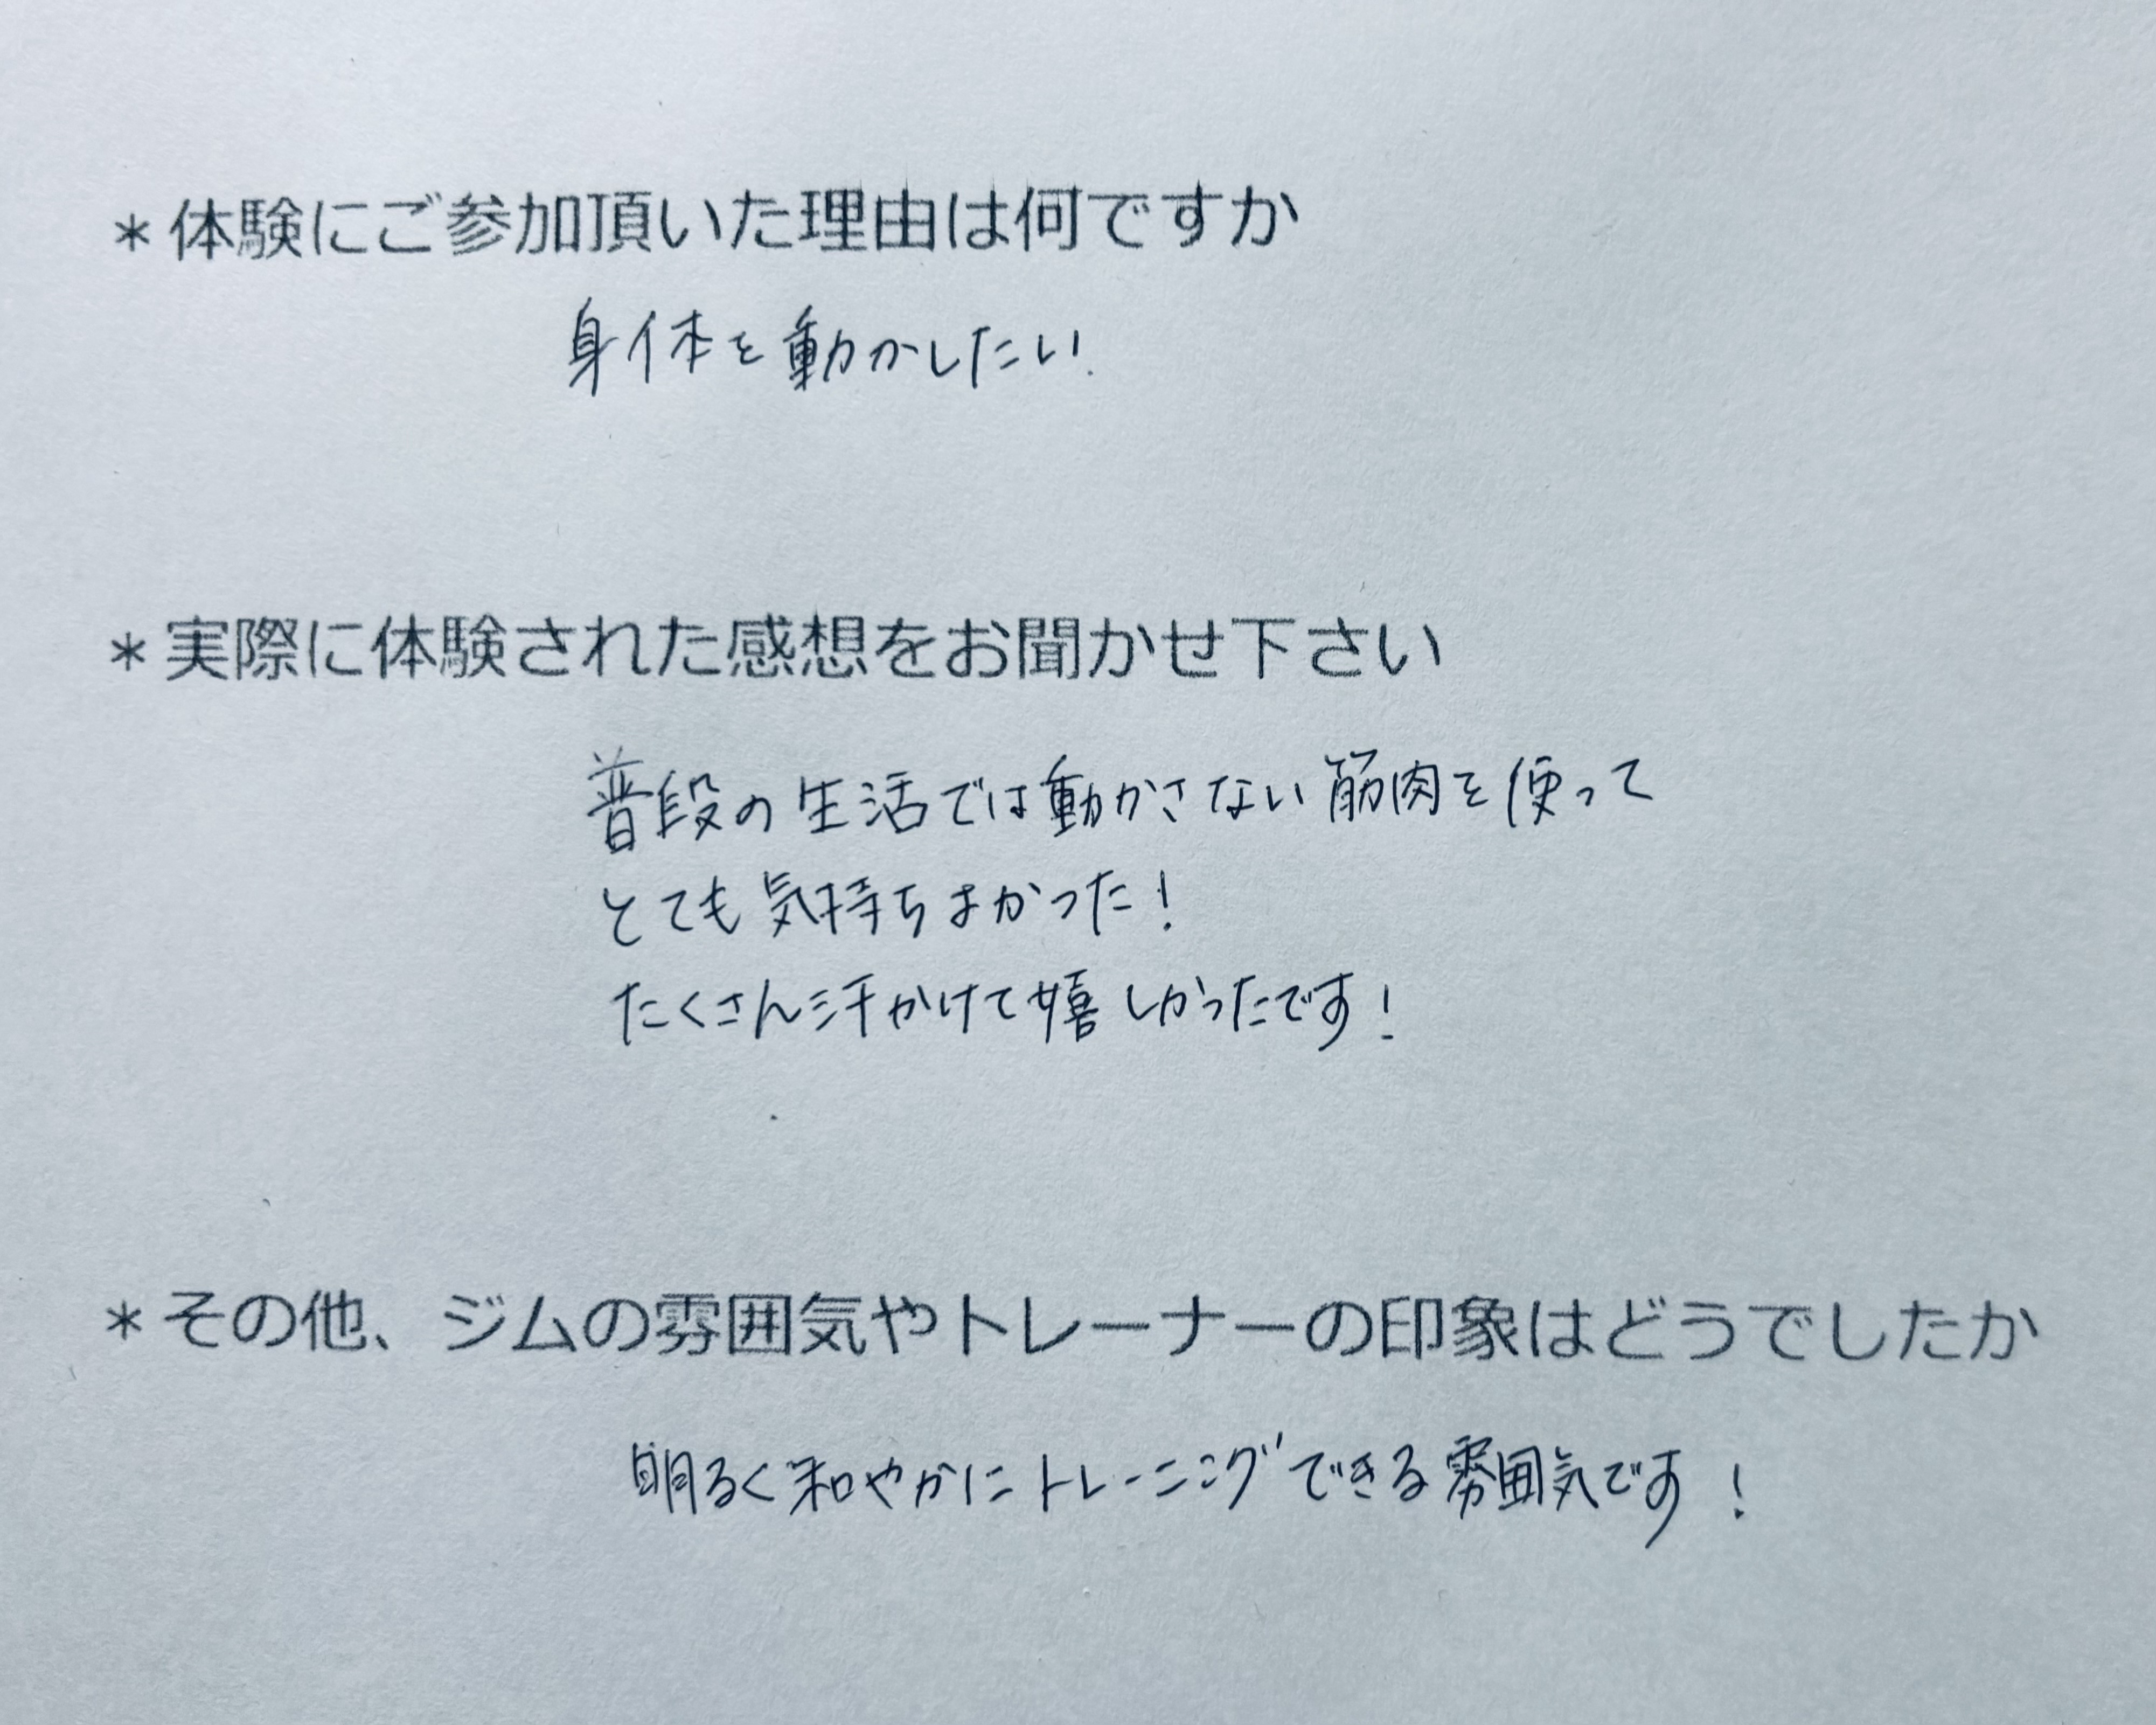 ＊体験にご参加頂いた理由は何ですか
身体を動かしたい.
＊実際に体験された感想をお聞かせ下さい
普段の生活では動かさない筋肉を使って
とても気持ちよかった！
たくさん汗かけて嬉しかったです！
＊その他、ジムの雰囲気やトレーナーの印象はどうでしたか
明るく和やかにトレーニングできる雰囲気です！